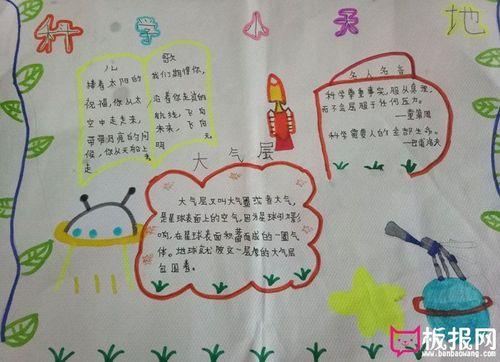 科学小天地
儿歌
棒着太阳的
祝福,你从太
空中走走来,
带着月亮的问
候,你从天船上走
我们拥懂你,
沿着你走过的
航线,飞向
未来,飞向
明
名人名言
科学需重事实,服从真理,
而不会屈服于任何压力。
—童第周
科学需要人的全部生命。
—巴甫洛夫
大气层
大气层又叫大气圈或者大气,
是星球表面上的空气,因为星球引力影
响,在星球表面积蓄而成的一圈气
体。地球就被又一层厚的大气层
包围着。
板报网
www.banbaowang.com